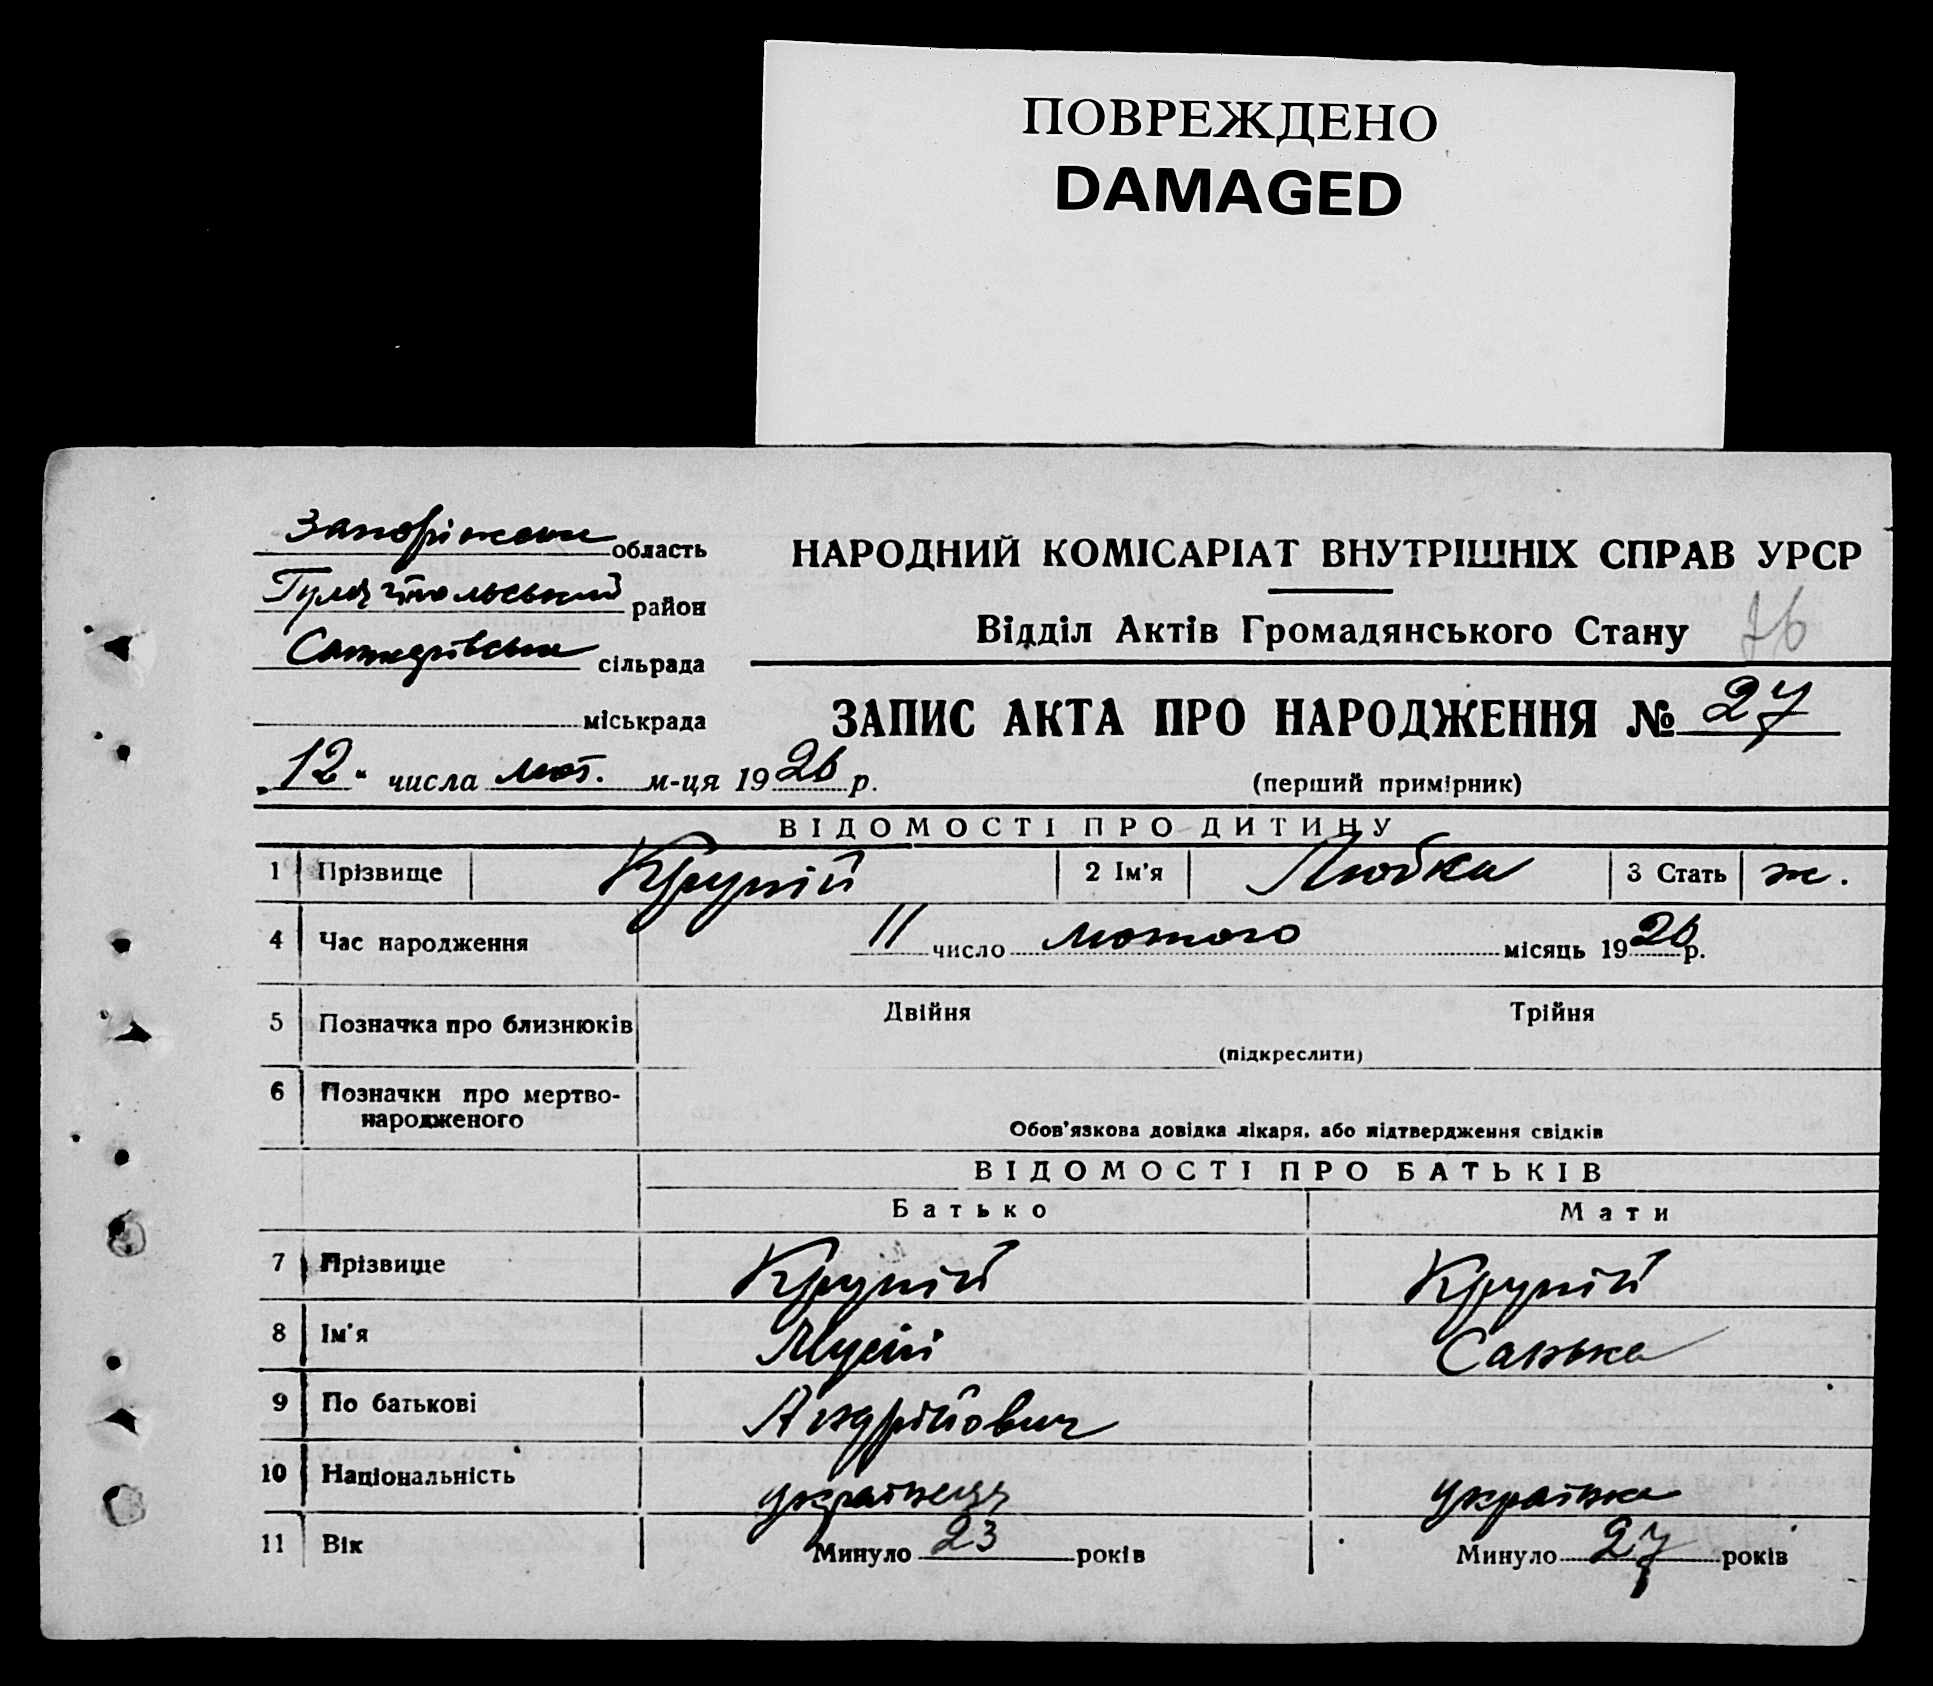 ПОВРЕЖДЕНО
DAMAGED
Запоріжська область
Гуляйпольський район
сільрада
міськрада
„12“ числа лют. м-ця 1926 р.
НАРОДНИЙ КОМІСАРІАТ ВНУТРІШНІХ СПРАВ УРСР
Відділ Актів Громадянського Стану
ЗАПИС АКТА ПРО НАРОДЖЕННЯ № 27
(перший примірник)
ВІДОМОСТІ ПРО ДИТИНУ
1 Прізвище Крупій 2 Ім'я Любка 3 Стать ж.
4 Час народження 11 число лютого місяць 1926 р.
5 Позначка про близнюків Двійня Трійня
(підкреслити)
6 Позначки про мертво-
народженого
Обов'язкова довідка лікаря, або підтвердження свідків
ВІДОМОСТІ ПРО БАТЬКІВ
Батько Мати
7 Прізвище Крупій Крупій
8 Ім'я Мусій Санька
9 По батькові Андрійович
10 Національність українець українка
11 Вік Минуло 23 років Минуло 27 років